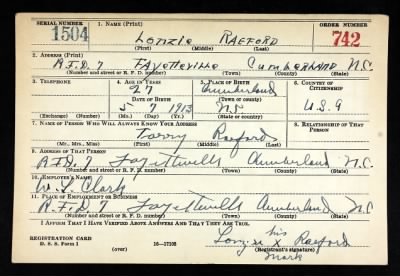 SERIAL NUMBER 1. NAME (Print) ORDER NUMBER
1504 Lonzie RAEFORD 742
(First) (Middle) (Last)
2. ADDRESS (Print)
R.F.D. 7 FAYETTEVILLE CUMBERLAND N.C.
(Number and street or R. F. D. number) (Town) (County) (State)
3. TELEPHONE 4. AGE IN YEARS 5. PLACE OF BIRTH 6. COUNTRY OF CITIZENSHIP
27 Cumberland
(Town or county)
DATE OF BIRTH
5 7 1913 N.C. U.S.A
(Exchange) (Number) (Mo.) (Day) (Yr.) (State or country)
7. NAME OF PERSON WHO WILL ALWAYS KNOW YOUR ADDRESS 8. RELATIONSHIP OF THAT PERSON
Raeford
(Mr., Mrs., Miss) (First) (Middle) (Last)
9. ADDRESS OF THAT PERSON
R.F.D. 7 Fayetteville Cumberland N.C.
(Number and street or R. F. D. number) (Town) (County) (State)
10. EMPLOYER'S NAME
Clark
11. PLACE OF EMPLOYMENT OR BUSINESS
R.F.D. 7 Fayetteville Cumberland N.C.
(Number and street or R. F. D. number) (Town) (County) (State)
I AFFIRM THAT I HAVE VERIFIED ABOVE ANSWERS AND THAT THEY ARE TRUE.
his
REGISTRATION CARD
D. S. S. Form 1 (over) 16-17105
Lonzie X Raeford
(Registrant's signature)
mark